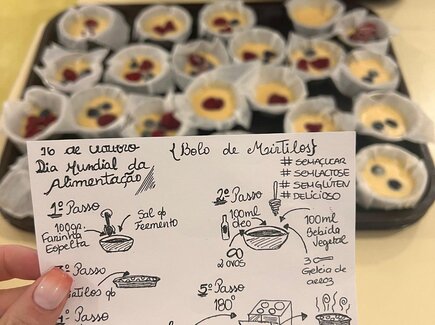 16 de outubro
Dia Mundial da
Alimentação
{Bolo de Mirtilos}
# SEM AÇUCAR
# SEM LACTOSE
# SEM GLÚTEN
# DELICIOSO
1º Passo
100gr.
Farinha
Espelta
Sal qb
Fermento
2º Passo
100ml
óleo
2 ovos
100ml
Bebida
Vegetal
3
Geleia de
arroz
Passo
tilos qb
Passo
5º Passo
180º